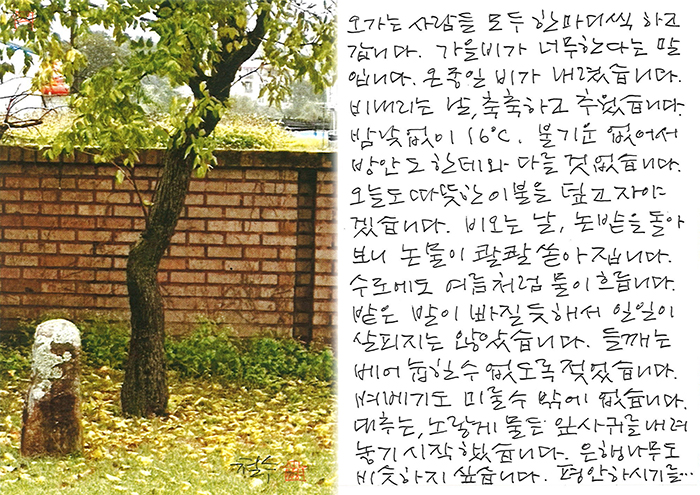 오가는 사람들 모두 한마디씩 하고
갑니다. 가을비가 너무한다는 말
입니다. 온종일 비가 내렸습니다.
비내리는 날, 축축하고 추웠습니다.
밤낮없이 16℃. 불기운 없어서
방안도 한데와 다를 것 없습니다.
오늘도 따뜻한 이불을 덮고 자야
겠습니다. 비오는 날, 논밭을 돌아
보니 논물이 콸콸 쏟아집니다.
수로에도 여름처럼 물이 흐릅니다.
밭은 발이 빠질 듯해서 일일이
살피지는 않았습니다. 들깨는
베어 눕힐 수 없도록 젖었습니다.
벼베기도 미룰 수 밖에 없습니다.
대추는, 노랗게 물든 잎사귀를 내려
놓기 시작했습니다. 은행나무도
비슷하지 싶습니다. 평안하시기를…
철수